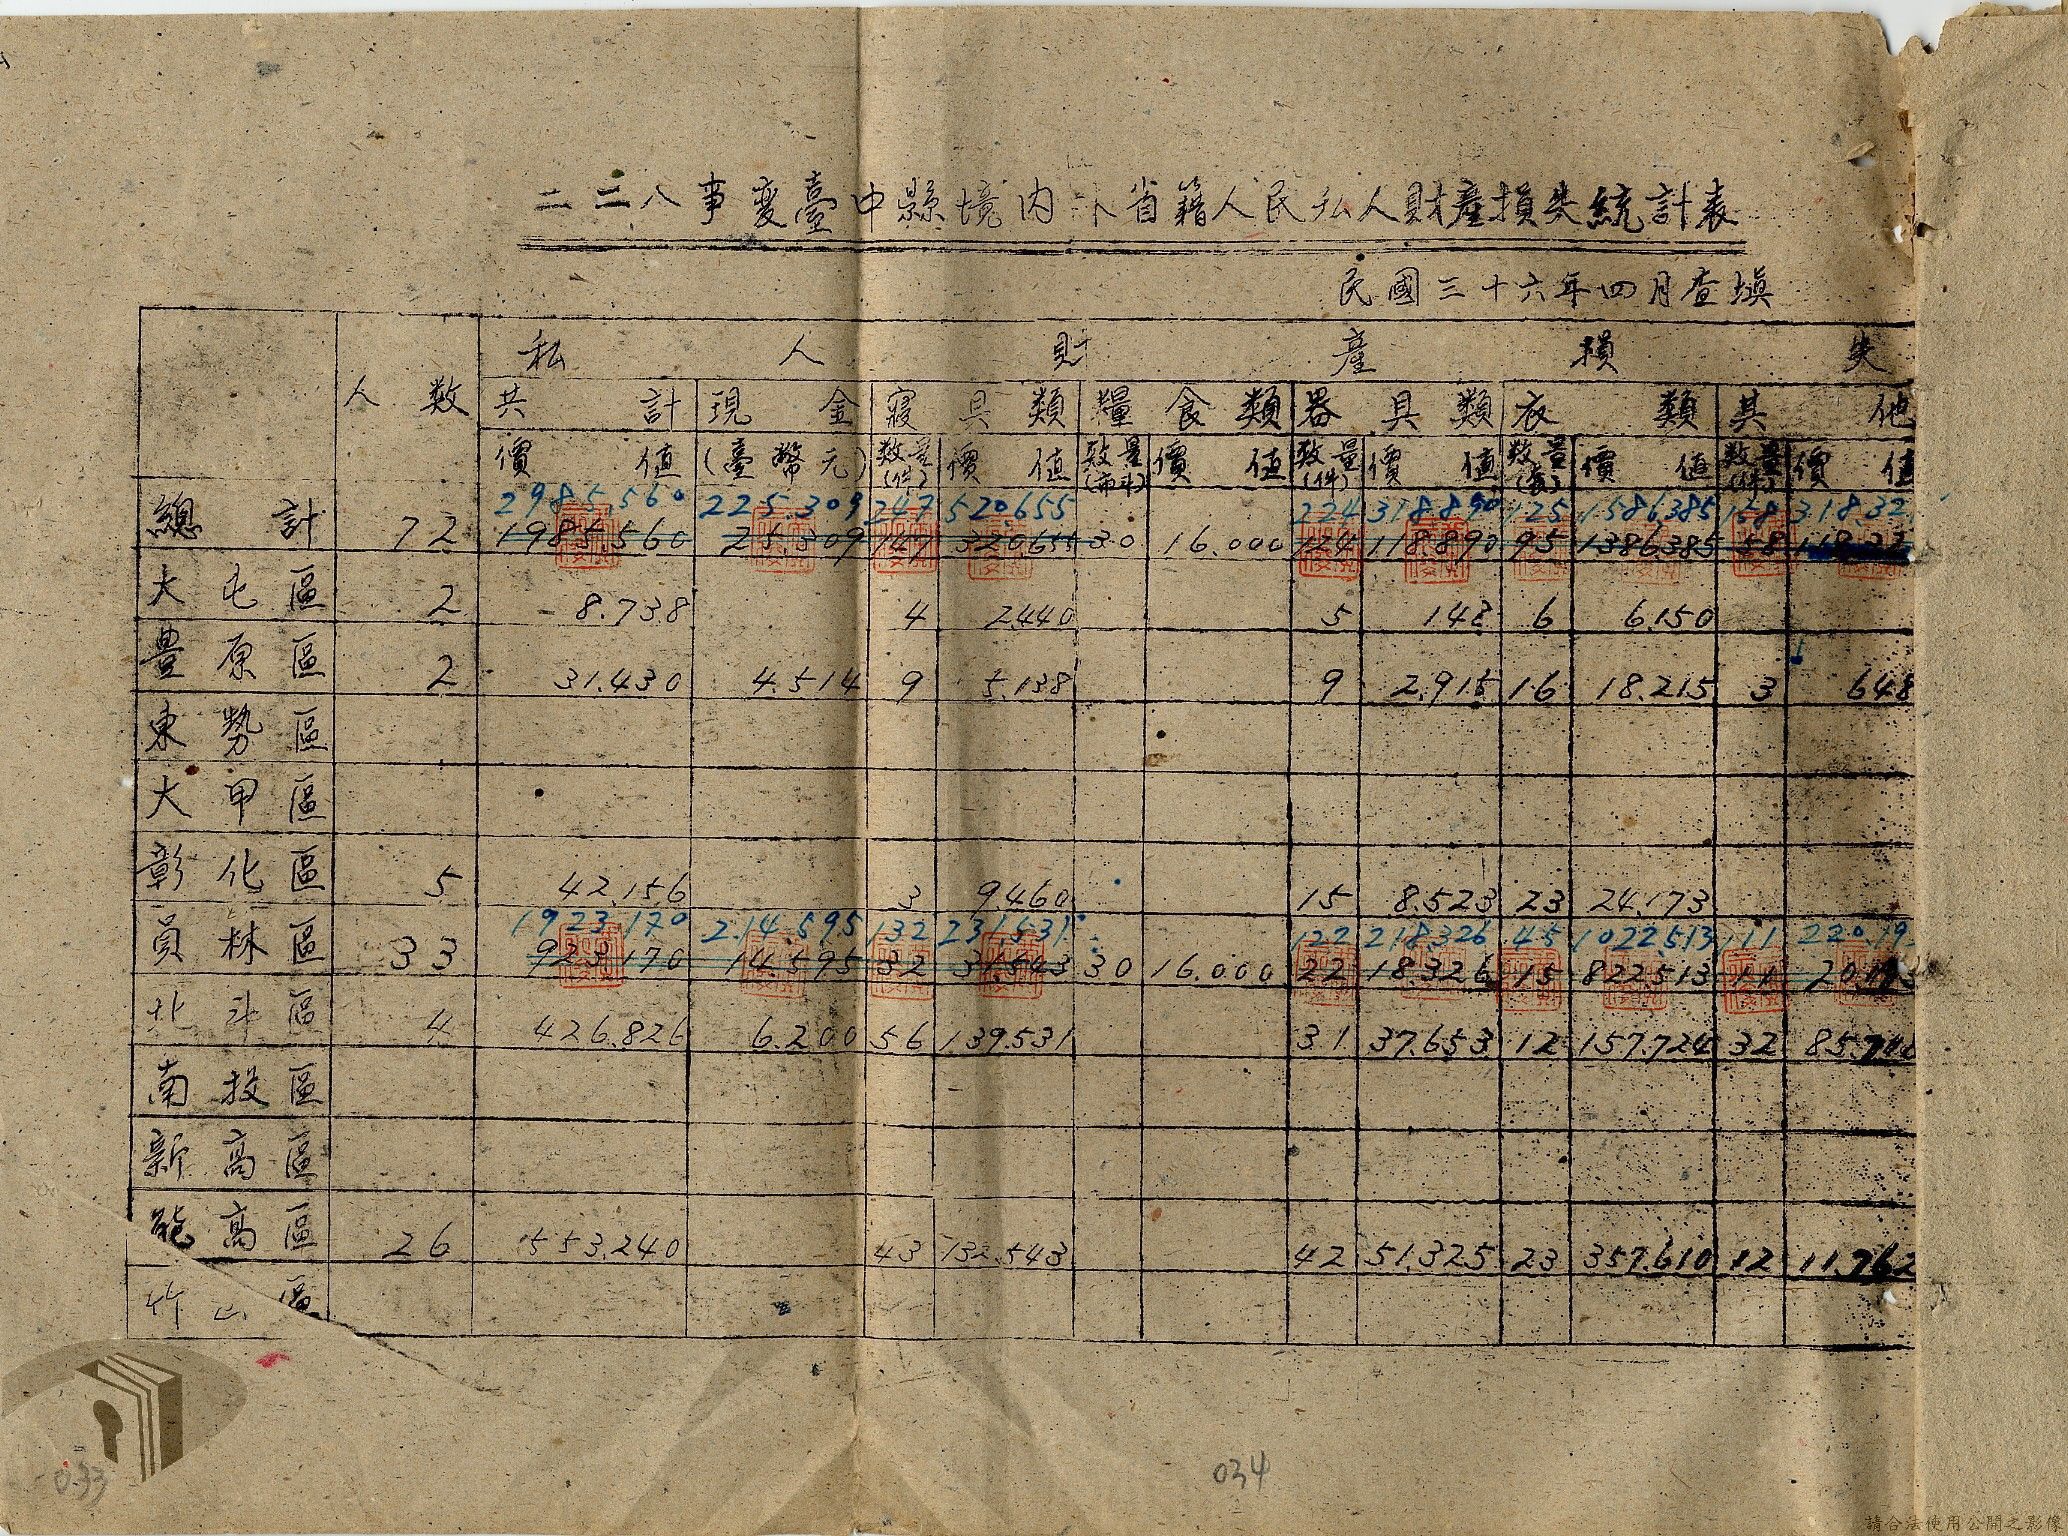 二二八事变臺中縣境内外省籍人民私人財產損失統計表
民國三十六年四月查填
私人財產損失
人数 共計 現金 寢具類 糧食類 器具類 衣類 其他
價值 (臺幣元) 数量(件) 價值 数量(市斗) 價值 数量(件) 價值 数量(套) 價值 数量(件) 價值
2985,560 225.309 247 520.655 224 318.890 125 1586385 158 318.32
總計 72 1985,560 25.309 147 320.655 30 16.000 124 118.890 95 1386385 58 118.32
大屯區 2 8.738 4 2440 5 148 6 6.150
豊原區 2 31.430 4.514 9 5.138 9 2.915 16 18.215 3 648
東勢區
大甲區
彰化區 5 42.156 3 9.460 15 8.523 23 24.173
1923.170 214.595 132 231.531 122 218.326 45 1022513 111 220.19
員林區 33 923.170 14.595 32 31543 30 16.000 22 18.326 15 822.513 11 20.193
北斗區 4 426.826 6.200 56 139.531 31 37.653 12 157.724 32 85.7
南投區
新高區
能高區 26 1553.240 43 132.543 42 51.325 23 357.610 12 11.762
竹山區
033
034
請合法使用公開之影像